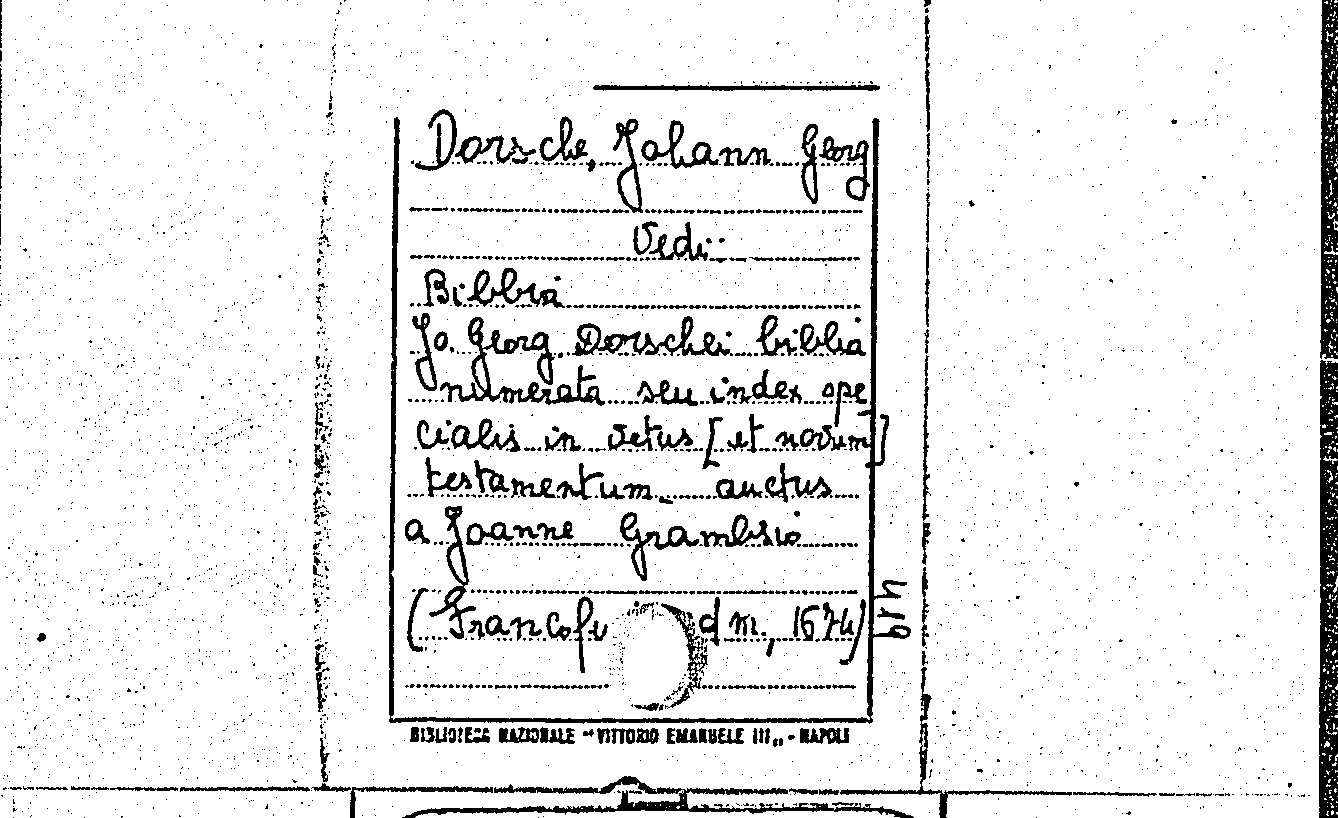 Dorsche, Johann Georg
Vedi:
Bibbia
Jo. Georg. Dorschei biblia
numerata seu index spe
cialis in vetus [et novum]
testamentum_ auctus
a Joanne Grambsio
(Francofu d m., 1674)
BIBLIOTECA NAZIONALE "VITTORIO EMANUELE III„ - NAPOLI